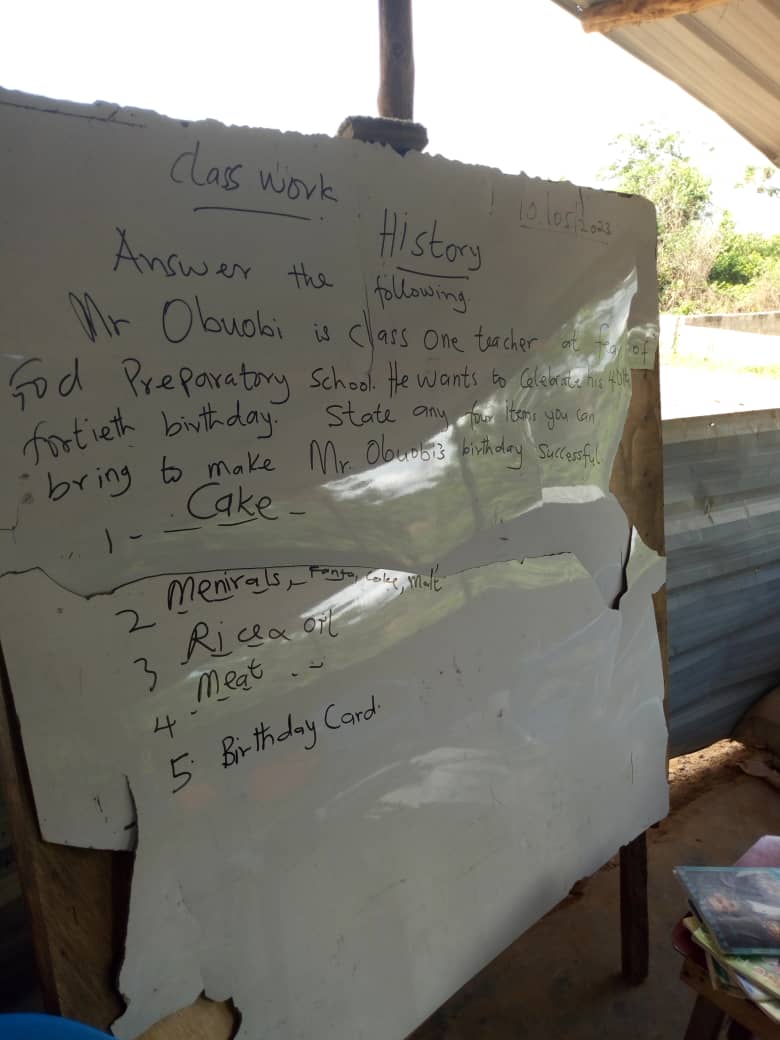 Class work
10.105/2023
History
Answer the following.
Mr Obuobi is Class One teacher at fear of
God Preparatory School. He wants to Celebrate his 40th
fortieth birthday. State any four items you can
bring to make Mr. Obuobi's birthday Successful
1 - Cake -
2 Menirals, Fanta, Coke, Malt
3 Rice & oil
4. Meat . -
5. Birthday Card.